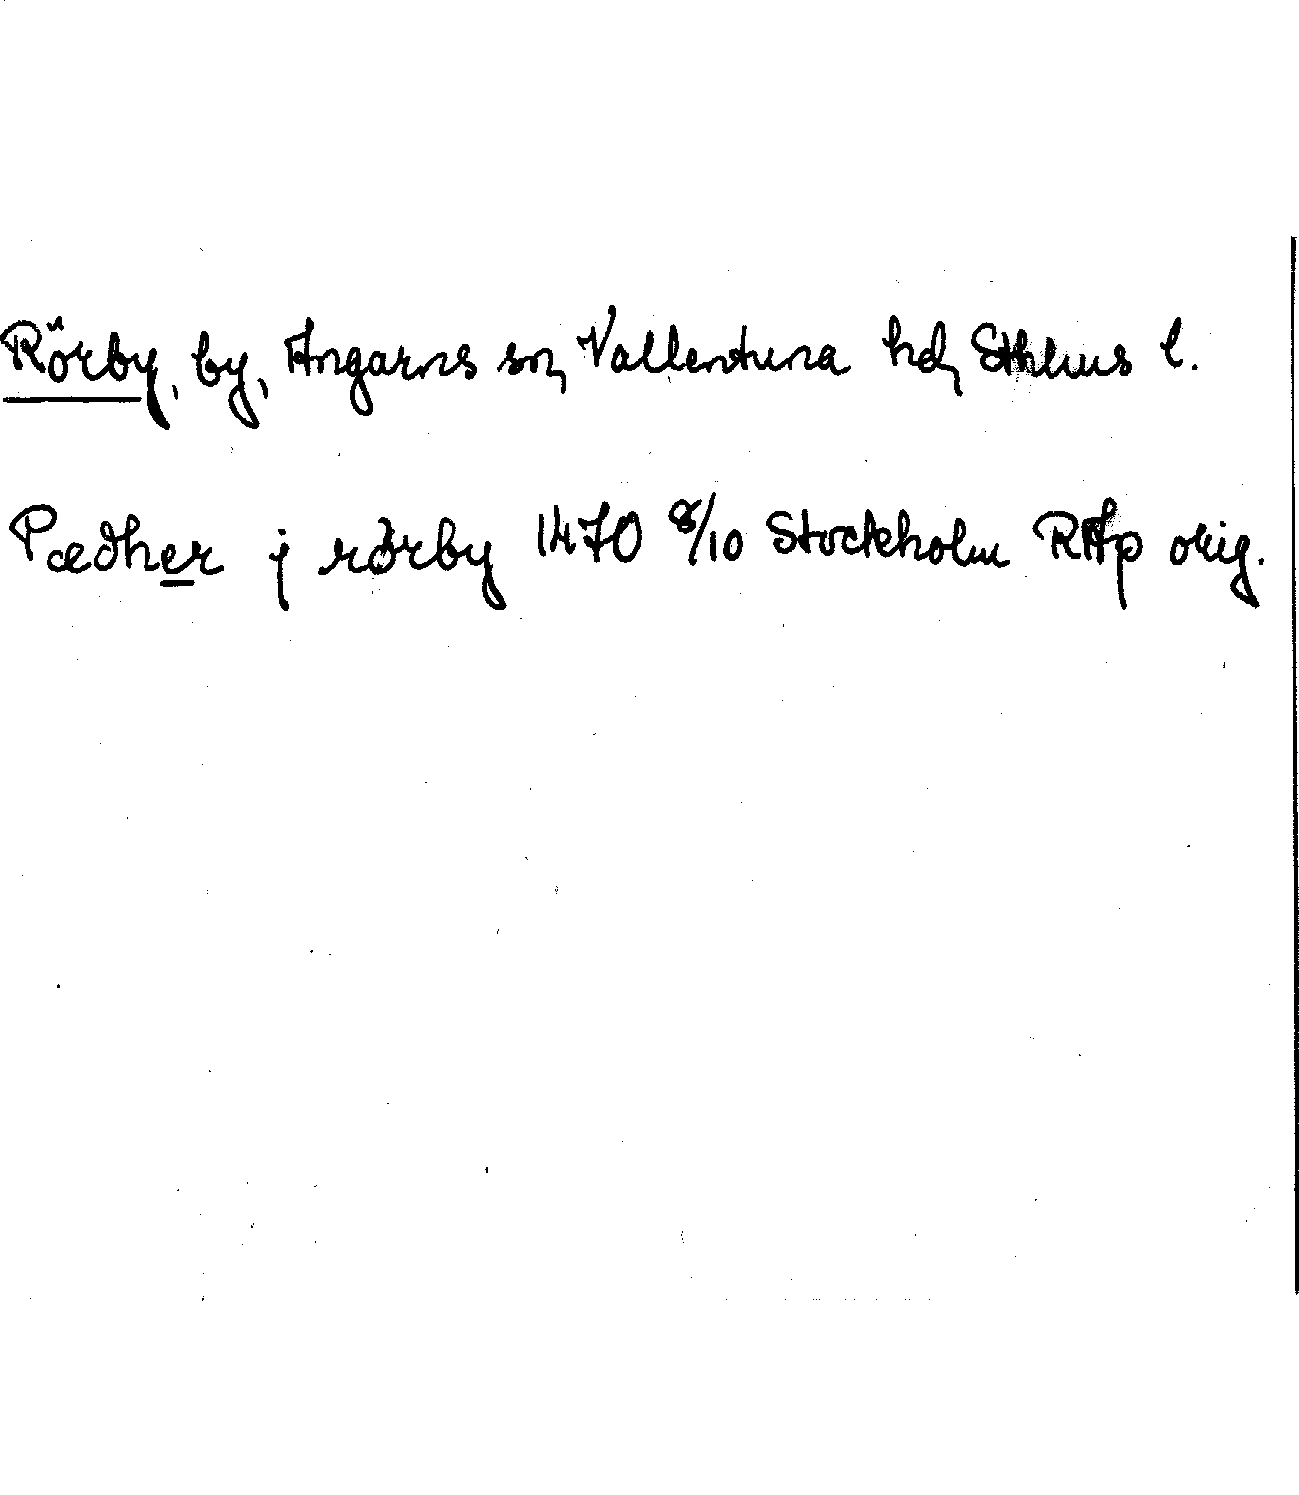 Rörby, by, Angarns sn, Vallentuna hd, Sthlms l.
Pædher j rørby 1470 8/10 Stockholm RAp orig.